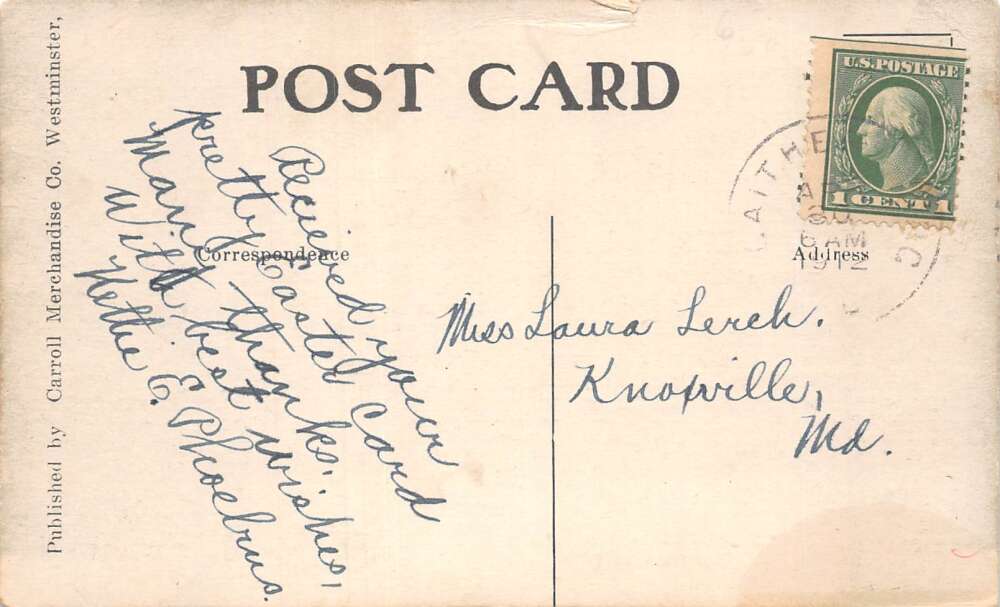 POST CARD
U.S. POSTAGE
1 CENT 1
6 AM
Correspondence
Address
Recieved your
pretty Easter Card
Many thanks.
With best wishes,
Nettie E. Phoebus.
Miss Laura Lerch.
Knoxville,
Md.
Published by Carroll Merchandise Co. Westminster,